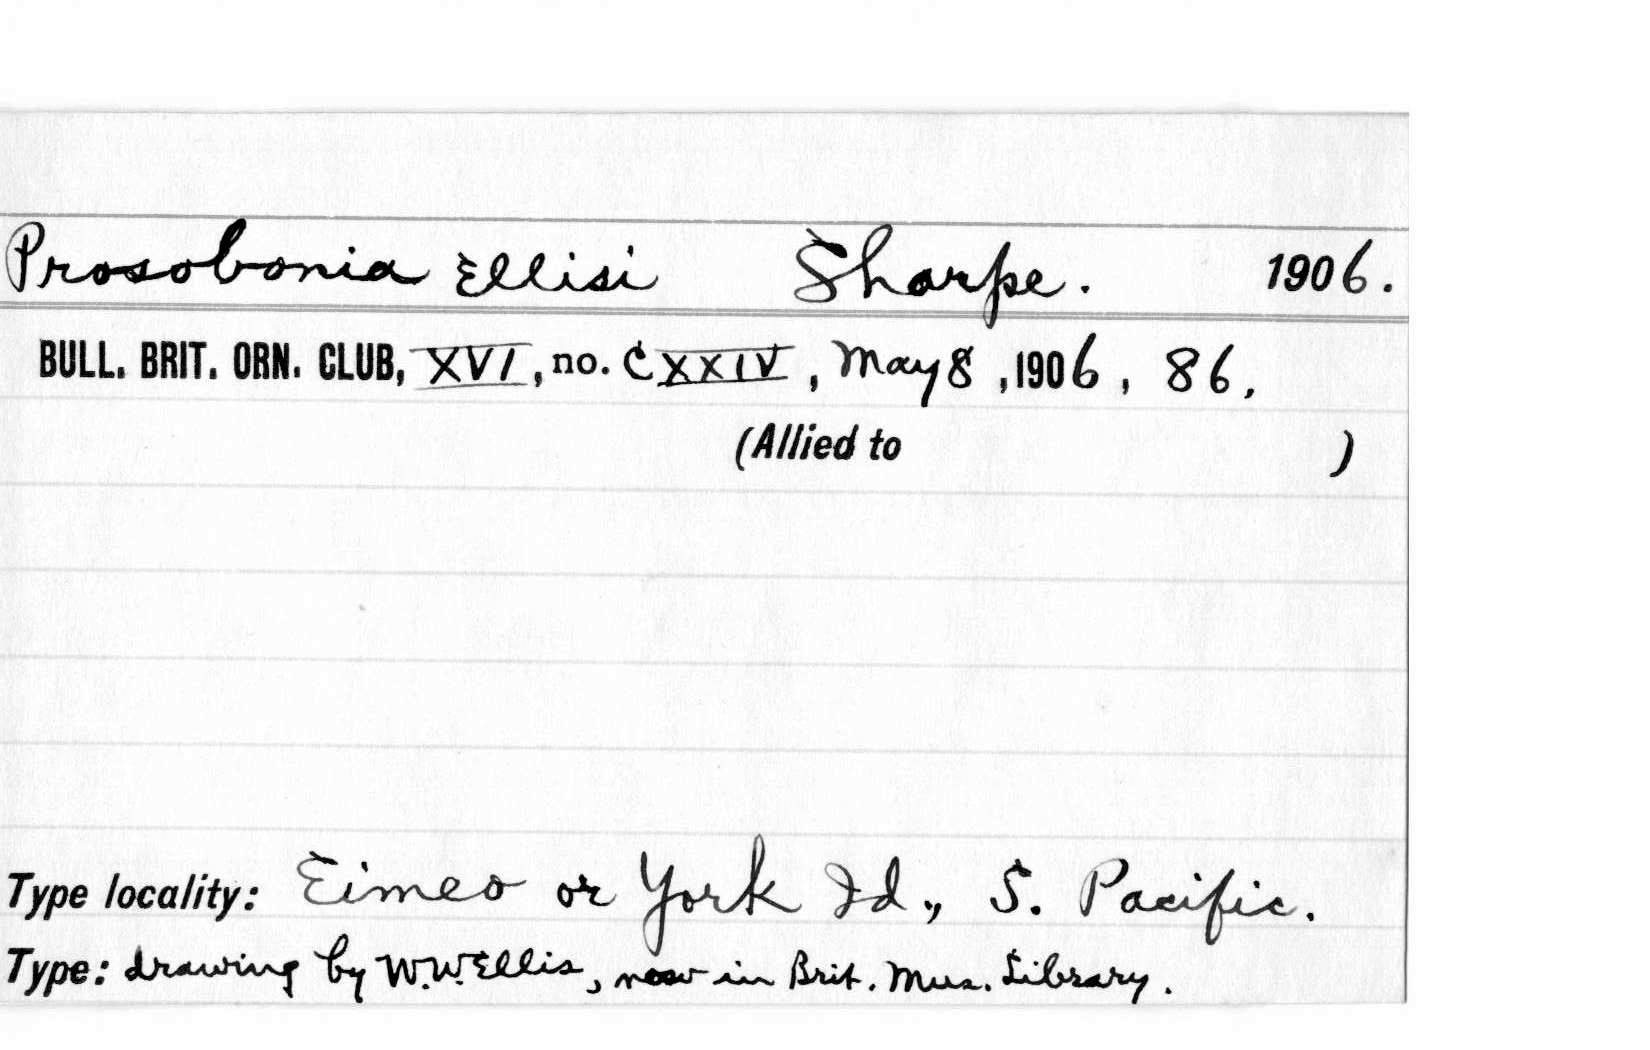 Prosobonia Ellisi Sharpe. 1906.
BULL. BRIT. ORN. CLUB, XVI, no. CXXIV, May 8, 1906, 86,
(Allied to )
Type locality: Eimeo or York Id., S. Pacific.
Type: drawing by W.W. Ellis, now in Brit. Mus. Library.